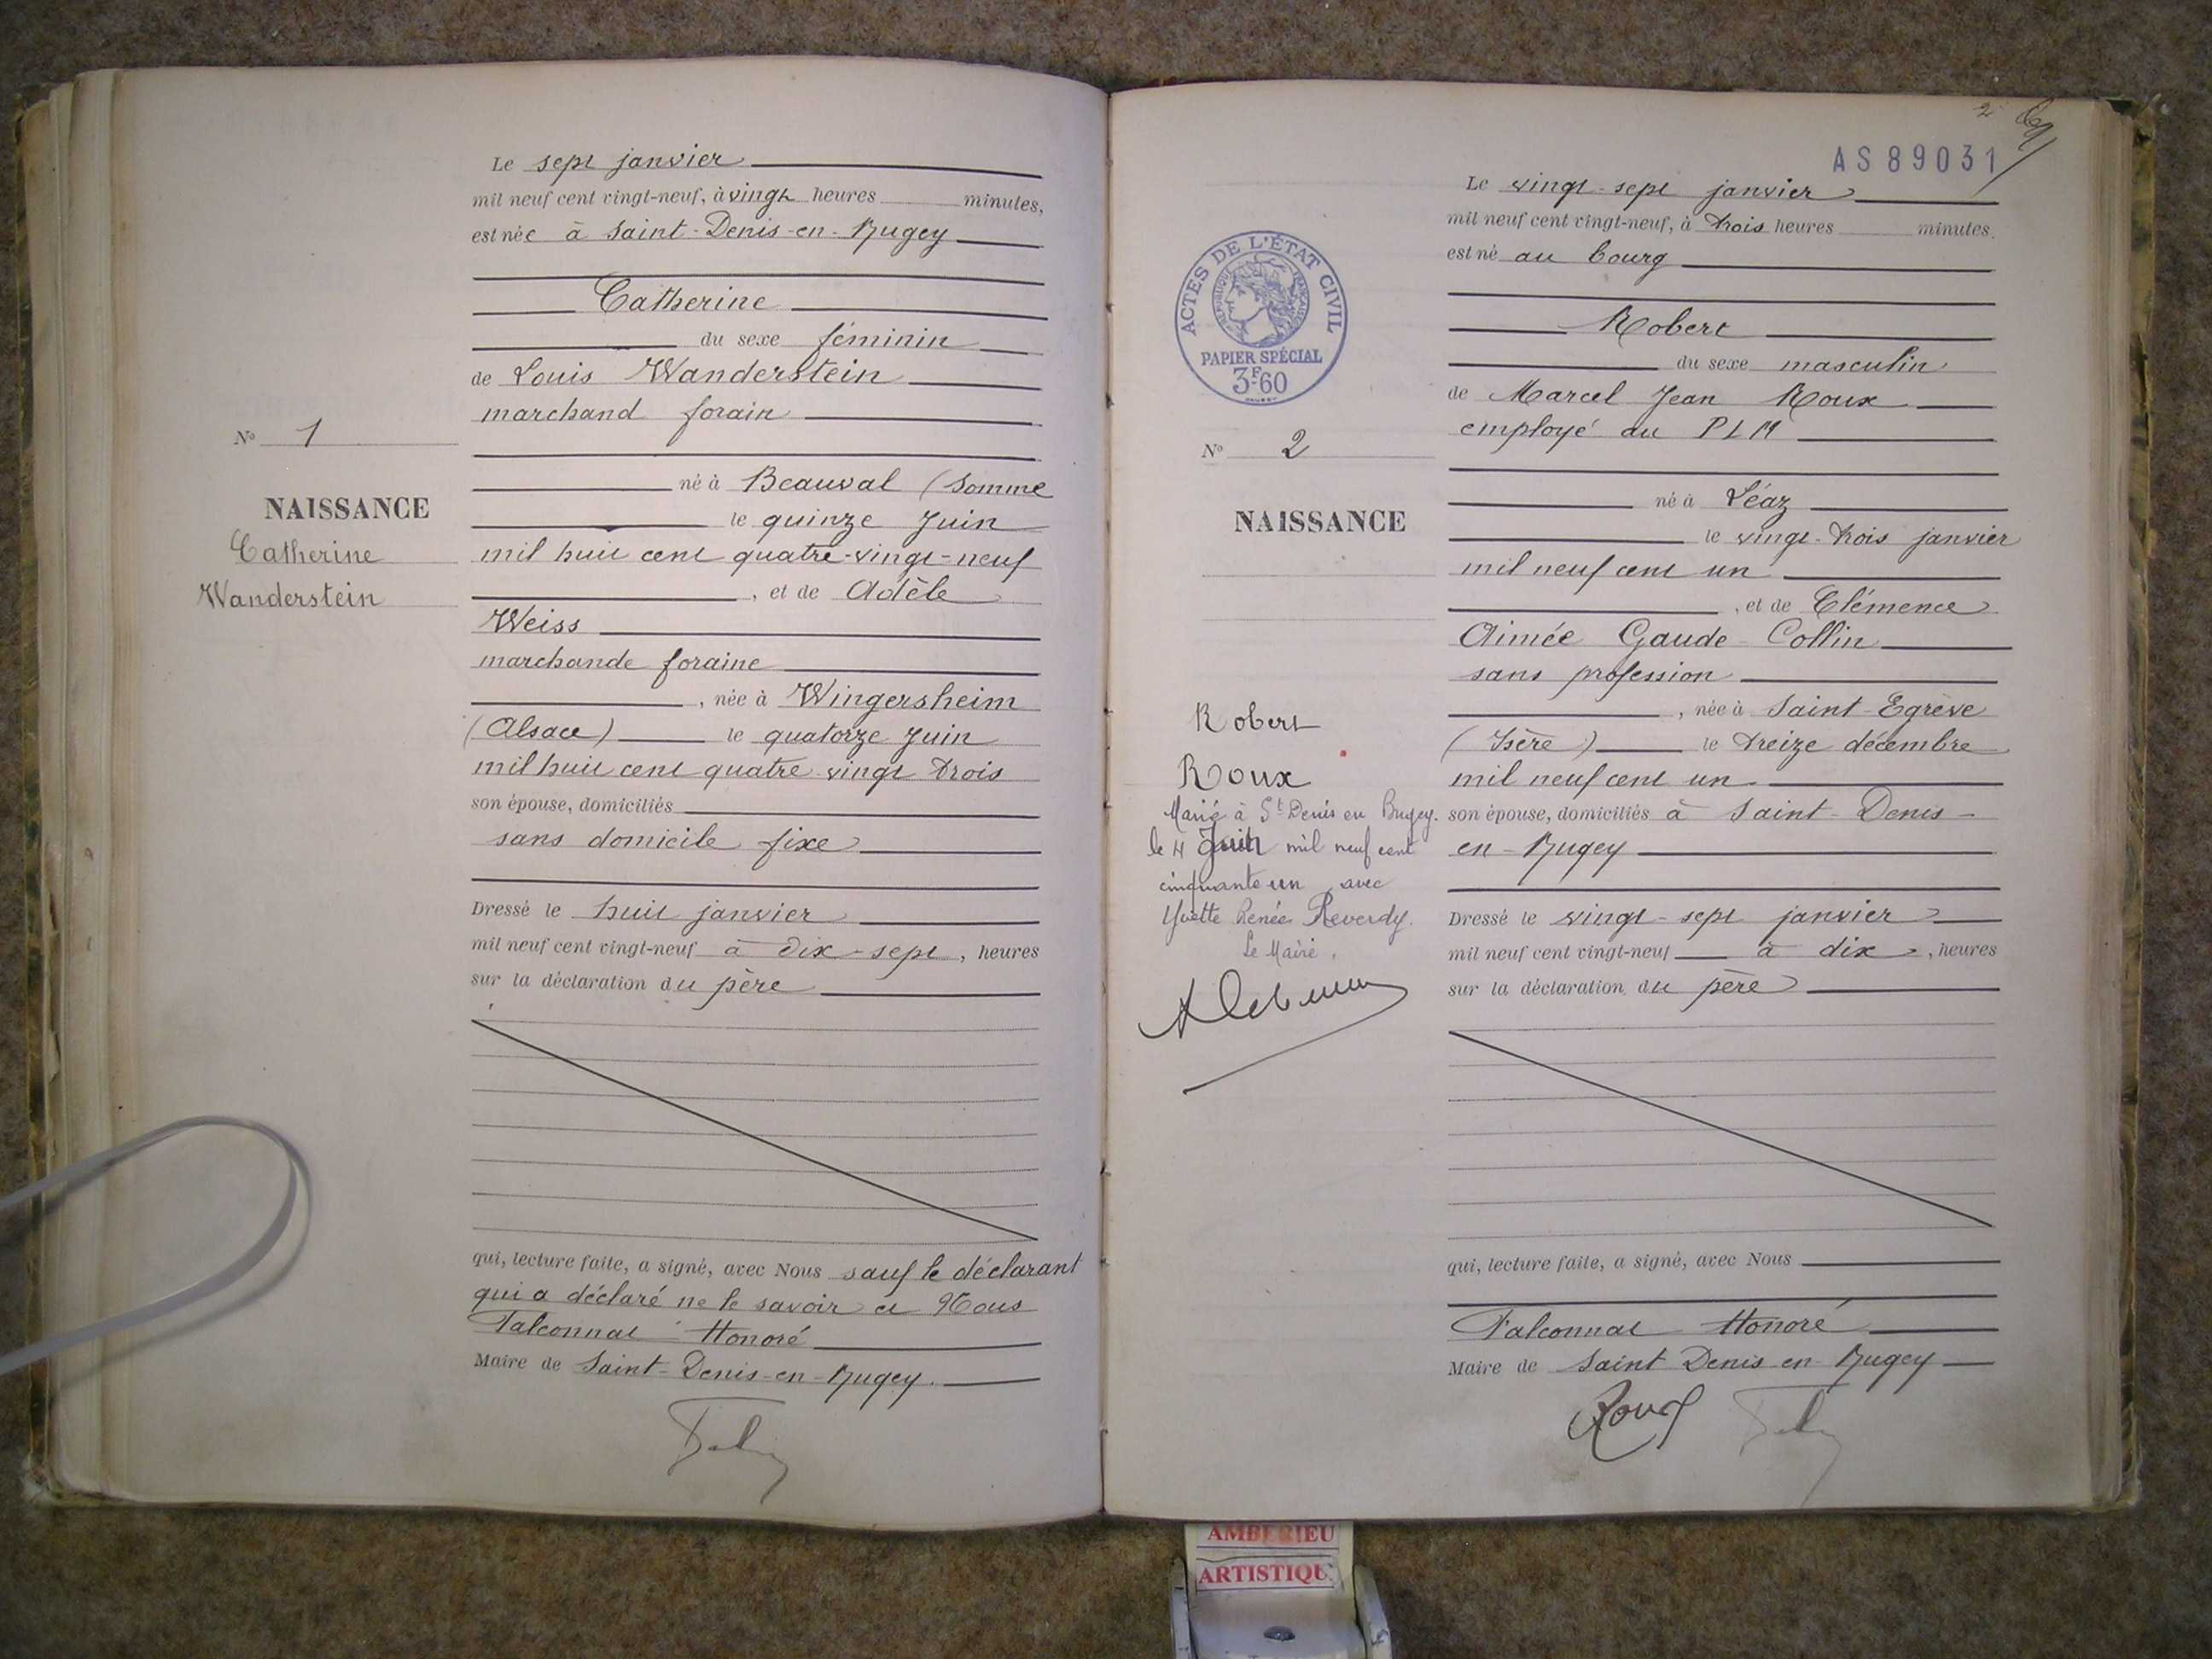 Le sept janvier
mil neuf cent vingt-neuf, à vingt heures minutes,
est née à Saint-Denis-en-Bugey
Catherine
du sexe féminin
de Louis Wanderstein
marchand forain
N° 1
né à Beauval (Somme
NAISSANCE
le quinze Juin
Catherine
mil huit cent quatre-vingt-neuf
Wanderstein
, et de Adèle
Weiss
marchande foraine
, née à Wingersheim
(Alsace) le quatorze Juin
mil huit cent quatre vingt trois
son épouse, domiciliés
sans domicile fixe
Dressé le huit janvier
mil neuf cent vingt-neuf à dix-sept, heures
sur la déclaration du père
qui, lecture faite, a signé, avec Nous sauf le déclarant
qui a déclaré ne le savoir et Nous
Falconnat Honoré
Maire de Saint-Denis-en-Bugey.
2
AS89031
Le vingt-sept janvier
mil neuf cent vingt-neuf, à trois heures minutes.
est né au bourg
ACTES DE L'ÉTAT CIVIL
RÉPUBLIQUE FRANÇAISE
PAPIER SPÉCIAL
3F60
Robert
du sexe masculin
de Marcel Jean Roux
employé au PLM
N° 2
né à Léaz
NAISSANCE
le vingt-trois janvier
mil neuf cent un
, et de Clémence
Aimée Gaude-Collin
sans profession
, née à Saint-Egrève
Robert
(Isère) le treize décembre
Roux
mil neuf cent un
Marié à St Denis en Bugey.
le 4 Juin mil neuf cent
cinquante un avec
Yvette Renée Reverdy.
Le Maire,
son épouse, domiciliés à Saint-Denis-
en-Bugey
Dressé le vingt-sept janvier
mil neuf cent vingt-neuf à dix, heures
sur la déclaration du père
qui, lecture faite, a signé, avec Nous
Falconnat Honoré
Maire de Saint Denis-en-Bugey
Roux
AMBERIEU
ARTISTIQU